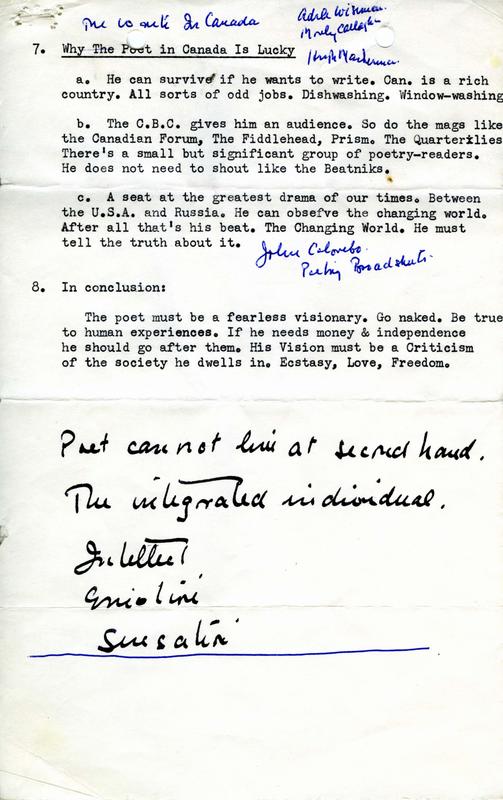 In Canada
Adele Wiseman
Morley Callaghan
Hugh MacLennan
7. Why The Poet in Canada Is Lucky
a. He can survive if he wants to write. Can. is a rich
country. All sorts of odd jobs. Dishwashing. Window-washing
b. The C.B.C. gives him an audience. So do the mags like
the Canadian Forum, The Fiddlehead, Prism. The Quarterilies
There's a small but significant group of poetry-readers.
He does not need to shout like the Beatniks.
c. A seat at the greatest drama of our times. Between
the U.S.A. and Russia. He can obsefve the changing world.
After all that's his beat. The Changing World. He must
tell the truth about it.
John Colombo.
Poetry Broadsheets.
8. In conclusion:
The poet must be a fearless visionary. Go naked. Be true
to human experiences. If he needs money & independence
he should go after them. His Vision must be a Criticism
of the society he dwells in. Ecstasy, Love, Freedom.
Poet cannot live at second hand.
The integrated individual.
Intellect
Emotion
Sensation